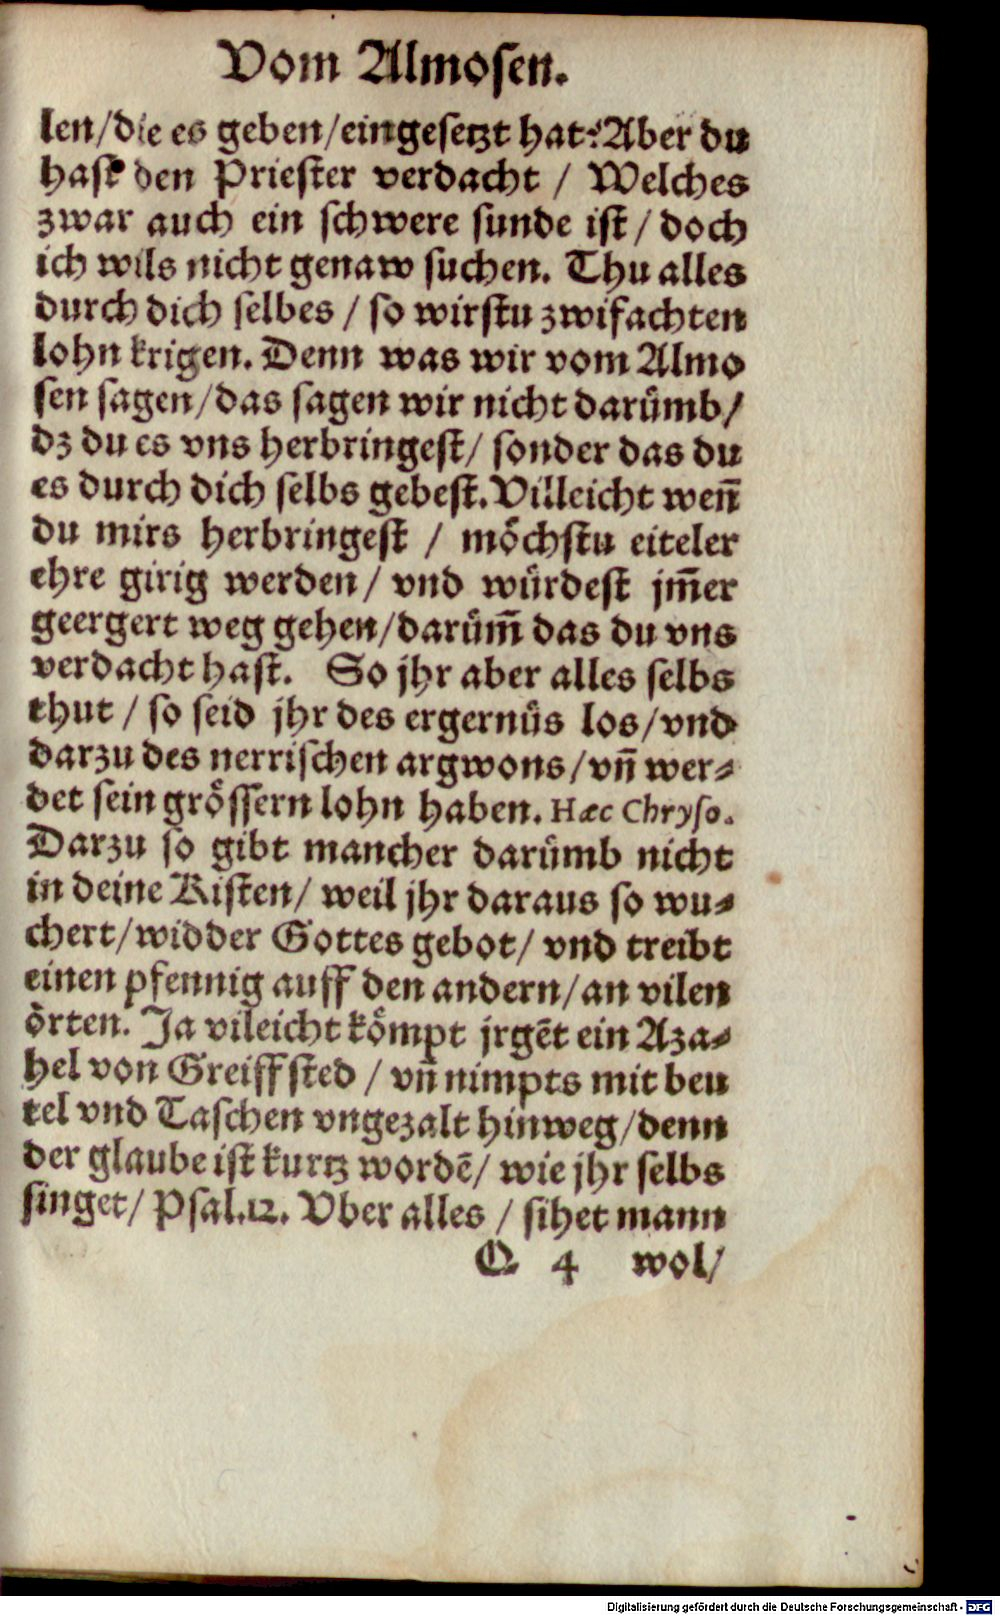 Vom Almosen.
len/die es geben/eingesetzt hat? Aber du
hast den Priester verdacht / Welches
zwar auch ein schwere sunde ist / doch
ich wils nicht genaw suchen. Thu alles
durch dich selbes / so wirstu zwifachten
lohn krigen. Denn was wir vom Almo
sen sagen/das sagen wir nicht darůmb/
dz du es vns herbringest/ sonder das du
es durch dich selbs gebest. Villeicht weñ
du mirs herbringest / mőchstu eiteler
ehre girig werden/ vnd wůrdest jm̃er
geergert weg gehen/darům̃ das du vns
verdacht hast. So jhr aber alles selbs
thut / so seid jhr des ergernůs los/vnd
darzu des nerrischen argwons/vñ wer⸗
det sein grőssern lohn haben. Hæc Chryso.
Darzu so gibt mancher darůmb nicht
in deine Kisten/ weil jhr daraus so wu⸗
chert/widder Gottes gebot/ vnd treibt
einen pfennig auff den andern/an vilen
őrten. Ja vileicht kőmpt jrgẽt ein Aza⸗
hel von Greiffsted / vñ nimpts mit beu
tel vnd Taschen vngezalt hinweg/denn
der glaube ist kurtz wordẽ/ wie jhr selbs
singet/ Psal.12. Vber alles / sihet mann
Q 4 wol/
Digitalisierung gefördert durch die Deutsche Forschungsgemeinschaft - DFG